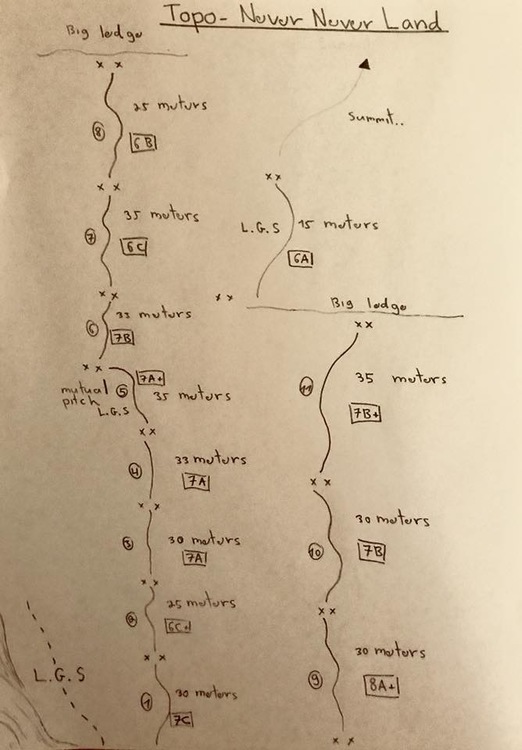 Topo- Never Never Land
Big ledge
x x
25 meters
8
6B
x x
35 meters
7
6C
x x
33 meters
6
7B
x x
7A+
5
mutual pitch
35 meters
L.G.S
x x
33 meters
4
7A
x x
30 meters
3
7A
x x
25 meters
2
6C+
x x
30 meters
1
7C
L.G.S
Summit..
x x
L.G.S
15 meters
6A
x x
Big ledge
x x
35 meters
11
7B+
x x
30 meters
10
7B
x x
30 meters
9
8A+
x x